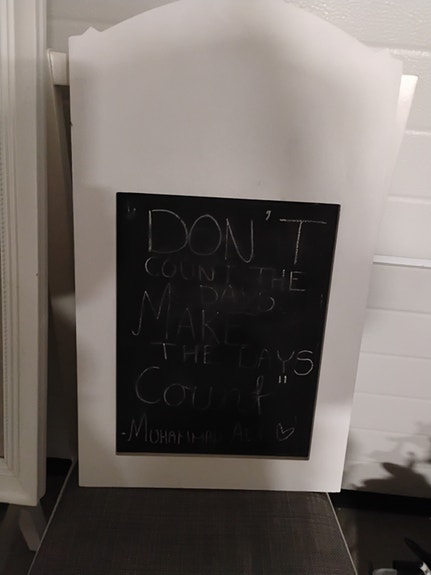 "DON'T
COUNT THE
DAYS
MAKE
THE DAYS
Count"
-MUHAMMAD ALI